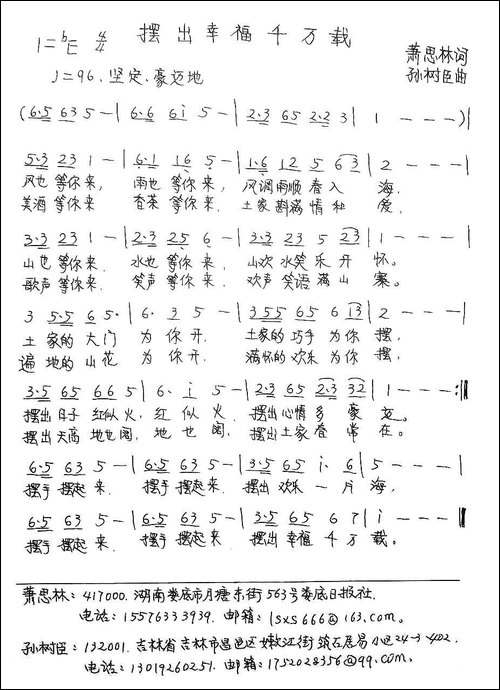 摆出幸福千万载
1=bE 4/4
萧思林词
孙树臣曲
♩=96. 坚定.豪迈地
(6·5 63 5 - | 6·6 6i 5 - | 2·3 65 2·2 3 | 1 - - - )|
5·3 23 1 - | 6·1 16 5 - | 1·6 12 5 63 | 2 - - - |
风也 等你 来, 雨也 等你 来, 风调雨顺 春入 海,
美酒 等你 来 香茶 等你 来, 土家 斟满 情和 爱,
3·3 23 1 - | 2·3 25 6 - | 3·3 23 5 23 | 1 - - - |
山也 等你 来. 水也 等你 来, 山欢 水笑 乐开 怀。
歌声 等你 来. 笑声 等你 来, 欢声 笑语 满山 寨。
3 5·5 6 5· | 6· 3 5 - | 3 55 65 6 i3 | 2 - - - |
土 家的 大门 为 你 开. 土家的 巧手 为你 摆,
遍 地的 山花 为 你 开. 满怀的 欢乐 为你 摆,
3·5 65 66 5 | 6· i 5 - | 2·3 65 2·3 32 | 1 - - - :‖
摆出 日子 红似 火, 红 似 火. 摆出 心情 多 豪 迈。
摆出 天高 地也 阔, 地 也 阔, 摆出 土家 春 常 在。
6·5 63 5 - | 6·5 63 5 - | 3·5 65 i· 6 | 5 - - - |
摆手 摆起 来, 摆手 摆起 来, 摆出 欢乐 一 片 海,
6·5 63 5 - | 6·5 63 5 - | 3·5 65 6 7 | i - - - ‖
摆手 摆起 来, 摆手 摆起 来 摆出 幸福 千 万 载。
萧思林: 417000. 湖南娄底市月塘东街563号娄底日报社.
电话: 15576333939. 邮箱: lsxs666@163.com。
孙树臣: 132001. 吉林省吉林市昌邑区嫩江街 筑石居易小区24-3-402.
电话: 13019260251. 邮箱: 1752028356@qq.com。